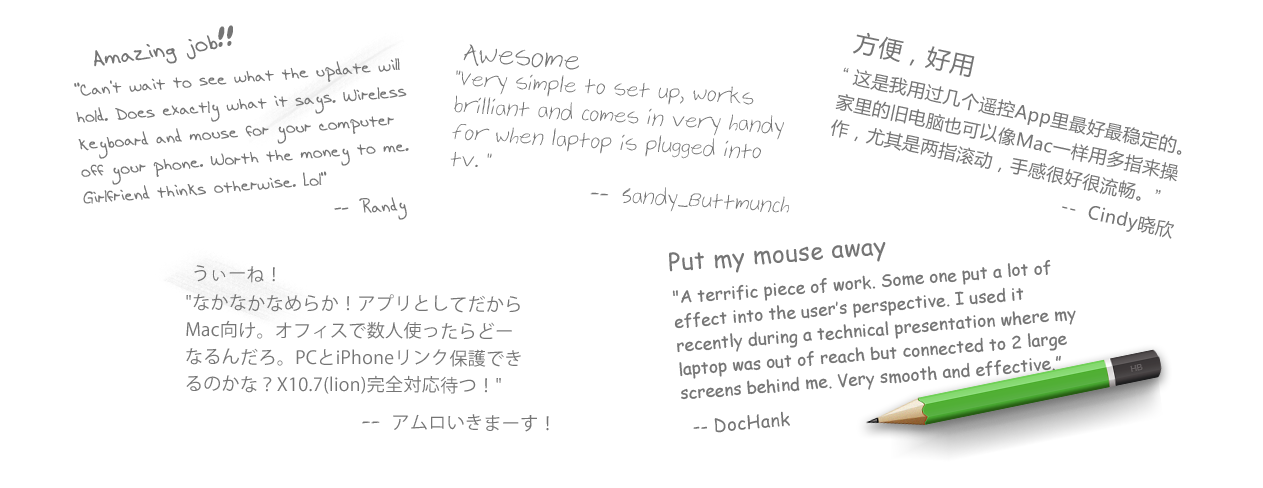 Amazing job!!
"Can't wait to see what the update will
hold. Does exactly what it says. Wireless
keyboard and mouse for your computer
off your phone. Worth the money to me.
Girlfriend thinks otherwise. Lol"
-- Randy
Awesome
"Very simple to set up, works
brilliant and comes in very handy
for when laptop is plugged into
tv. "
-- Sandy_Buttmunch
方便，好用
“ 这是我用过几个遥控App里最好最稳定的。
家里的旧电脑也可以像Mac一样用多指来操
作，尤其是两指滚动，手感很好很流畅。”
-- Cindy晓欣
うぃーね！
"なかなかなめらか！アプリとしてだから
Mac向け。オフィスで数人使ったらどー
なるんだろ。PCとiPhoneリンク保護でき
るのかな？X10.7(lion)完全対応待つ！"
-- アムロいきまーす！
Put my mouse away
"A terrific piece of work. Some one put a lot of
effect into the user's perspective. I used it
recently during a technical presentation where my
laptop was out of reach but connected to 2 large
screens behind me. Very smooth and effective."
-- DocHank
HB